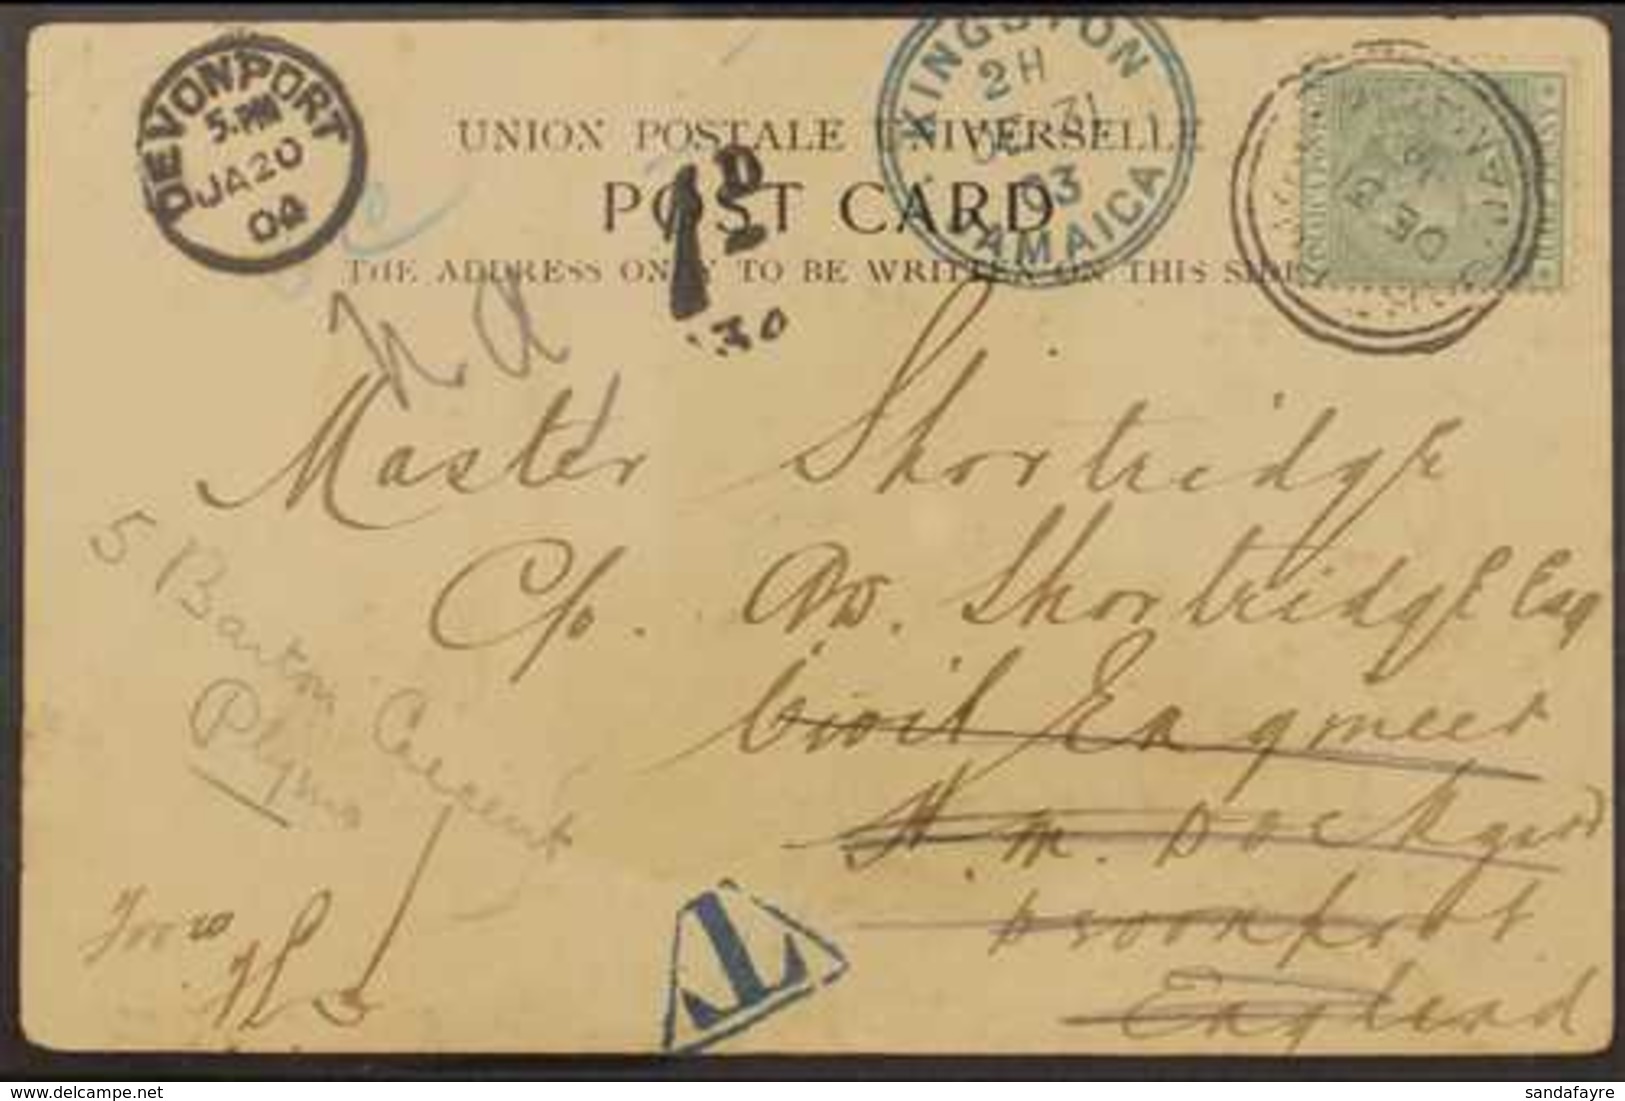 DEVONPORT
5. PM
JA 20
04
KINGSTON
2 H
DE 31
03
JAMAICA
UNION POSTALE UNIVERSELLE
POST CARD
THE ADDRESS ONLY TO BE WRITTEN ON THIS SIDE
1D
30
DE 31
Master Shortridge
C/o. Shortridge Esq
Civil Engineer
H. M. Dockyard
Devonport
England
5 Barton Crescent
Plym
From
T
sandafayre